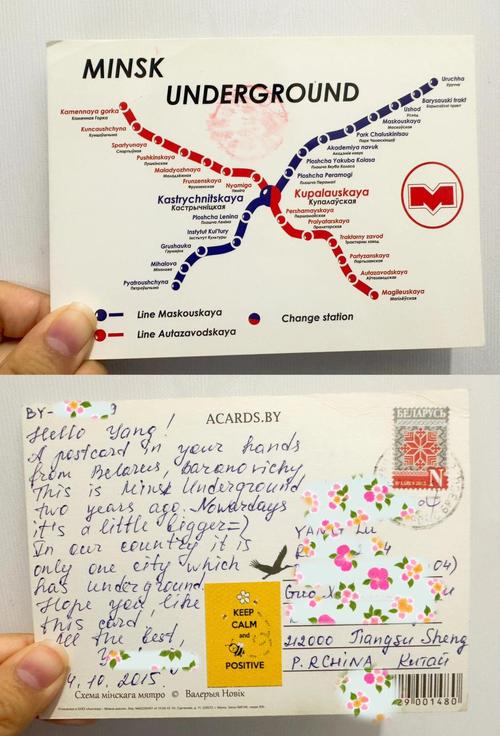 MINSK
UNDERGROUND
Kamennaya gorka
Каменная Горка
Kuncaushchyna
Spartyunaya
Спартыўная
Pushkinskaya
Пушкінская
Maladyozhnaya
Маладзёжная
Frunzenskaya
Фрунзенская
Nyamiga
Няміга
Kastrychnitskaya
Кастрычніцкая
Kupalauskaya
Купалаўская
Uruchcha
Уручча
Barysauski trakt
Барысаўскі тракт
Ushod
Усход
Maskouskaya
Маскоўская
Park Chaluskintsau
Парк Чалюскінцаў
Akademiya navuk
Акадэмія навук
Ploshcha Yakuba Kolasa
Плошча Якуба Коласа
Ploshcha Peramogi
Плошча Перамогі
Ploshcha Lenina
Плошча Леніна
Instytut Kul'tury
Інстытут Культуры
Grushauka
Грушаўка
Mihalova
Міхалова
Pyatroushchyna
Пятроўшчына
Pershamayskaya
Першамайская
Pralyatarskaya
Пралетарская
Traktarny zavod
Трактарны завод
Partyzanskaya
Партызанская
Autazavodskaya
Аўтазаводская
Magileuskaya
Магілёўская
M
Line Maskouskaya
Line Autazavodskaya
Change station
BY-
ACARDS.BY
БЕЛАРУСЬ
N
Hello Yang!
A postcard in your hands
from Belarus, baranovichy
This is Minsk Underground
two years ago. Nowadays
it's a little bigger =)
In our country it is
only one city which
has underground.
Hope you like
this card!
All the best,
4.10.2015.
KEEP
CALM
and
POSITIVE
YANG Lu
04)
212000 Jiangsu Sheng
P.R CHINA Китай
Схема мінскага мятро © Валерыя Новік
29 001480